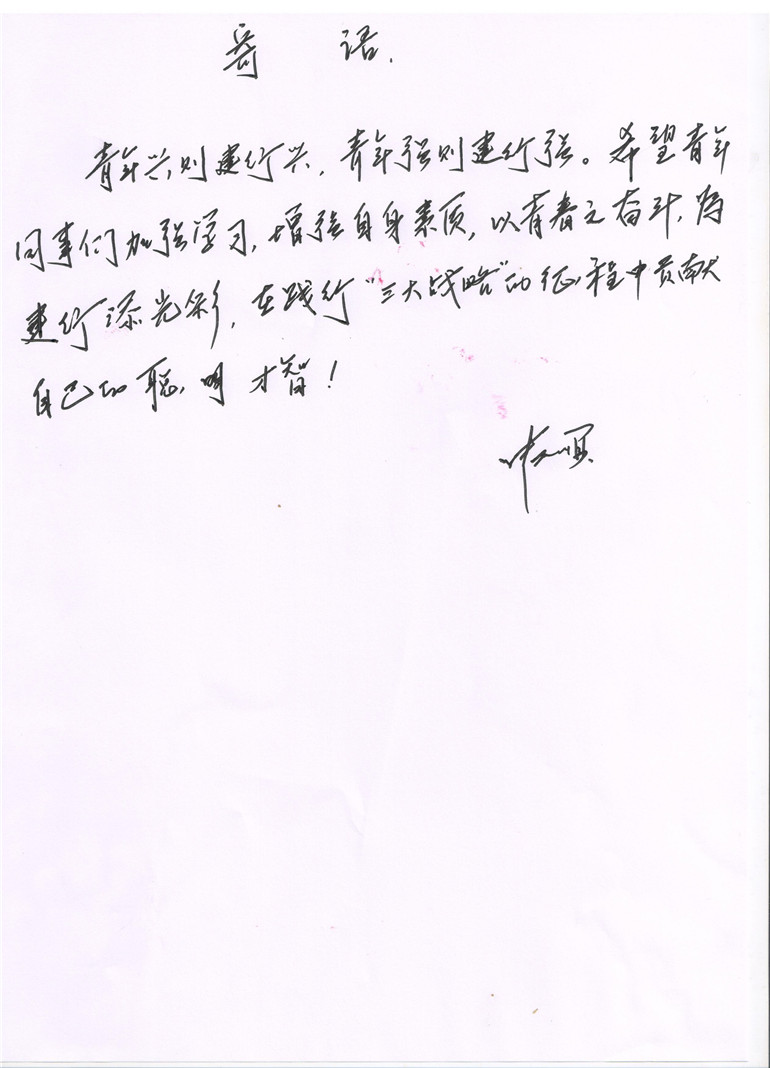 寄 语.
青年兴则建行兴，青年强则建行强。希望青年
同事们加强学习，增强自身素质，以青春之奋斗，为
建行添光彩，在践行“三大战略”的征程中贡献
自己的聪明才智！